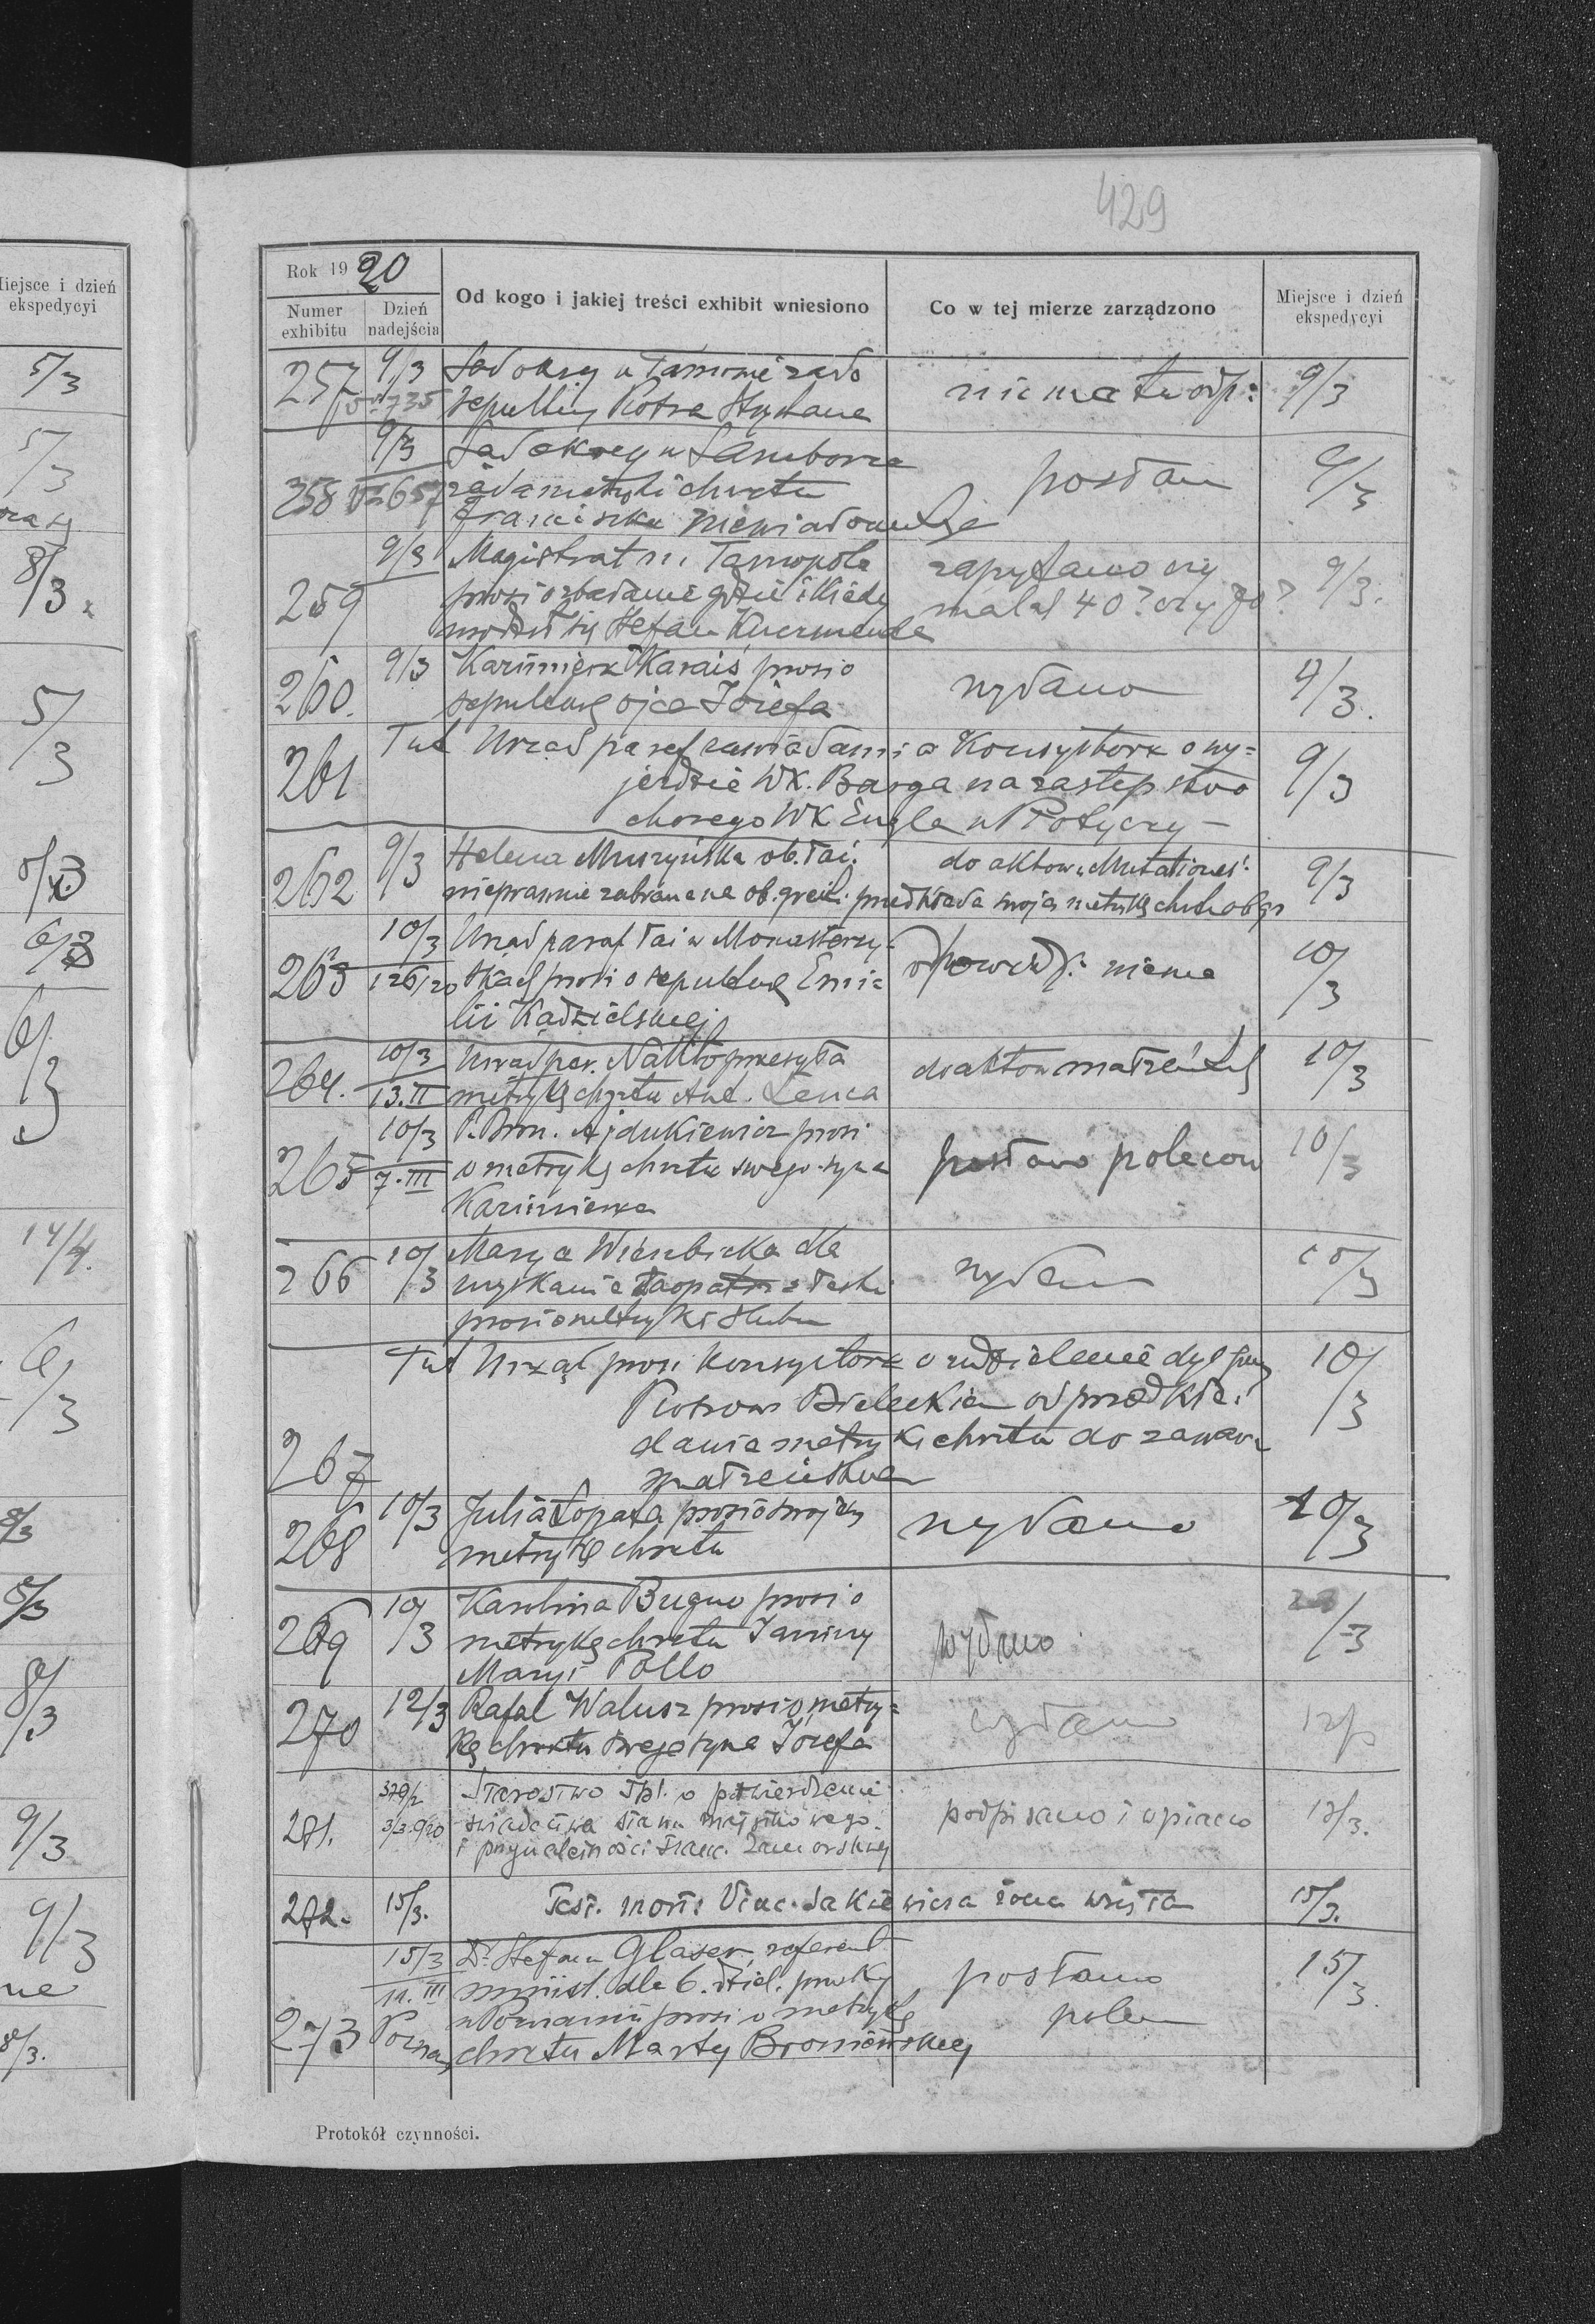 429
Miejsce i dzień
ekspedycyi
5/3
5/3
8/3
5/3
6/3
6/3
14/4.
6/3
8/3
9/3
9/3
Rok 1920
Numer
exhibitu
Dzień
nadejścia
Od kogo i jakiej treści exhibit wniesiono
Co w tej mierze zarządzono
Miejsce i dzień
ekspedycyi
257 9/3 Sąd okręg w żąda
735 sepultury Piotra
niema tu odp: 9/3
258 9/3 Sąd okręg w Samborze
657 żąda metryki chrztu
Franciszka
posłano 9/3
259 9/3 Magistrat m. Tarnopola
prosi o zbadanie gdzie i kiedy
się Stefan
zapytano czy
miał 40? czy 70? 9/3.
260. 9/3 Kazimierz Karaiś prosi o
sepulturę ojca Józefa
wydano 9/3.
261 Tut Urząd paraf zawiadamia Konsystorz o wy=
jeździe WX. Barga na zastępstwo
chorego WX Engla w Płotyczy — 9/3
262 9/3 Helena Muszyńska ob. łać.
nieprawnie zabrana na ob. grecki przedkłada swoją metrykę chrztu ob gr
do aktów „Mutationes“ 9/3
263 10/3 Urząd paraf łać w Monasterzy-
126/20 skach prosi o sepulturę Emi=
lii Kądzielskiej
odpowiedź: niema 10/3
264. 10/3 Urząd par. Nakło przesyła
13.II metrykę chrztu And. Lenca
do aktów małżeńskich 10/3
265 10/3 P. Bron. Ajdukiewicz prosi
7.III o metrykę chrztu swego syna
Kazimierza
posłano polecon 10/3
266 10/3 Marya Wierzbicka dla
uzyskania
prosi o metryki ślubu
wydano 10/3
267 Tut Urząd prosi Konsystorz o udzielenie dyspensy
Piotrowi Bieleckiem od przedkła:
dania metryki chrztu do zawar:
małżeństwa 10/3
268 10/3 Julia Łopata prosi o swoją
metrykę chrztu
wydano 10/3
269 10/3 Karolina Bugno prosi o
metrykę chrztu Janiny
Maryi Pollo
wydano /3
270 12/3 Rafał Walusz prosi o metry=
kę chrztu swego syna Józefa
wydano 12/3
271. 3/3.920 Starostwo Tpl. o potwierdzenie
świadectwa stanu majątkowego
i przynależności Franc. Zamorskiej
podpisano i wpisano 13/3.
272. 15/3. Test. mort: Vinc. Sakiewicza żona wzięła 15/3.
273 15/3 Dr. Stefan Glaser, referent
11.III minist. dla b. dziel. prusk
Poznań w Poznaniu prosi o metrykę
chrztu Marty Broniewskiej
posłano
polec 15/3.
Protokół czynności.